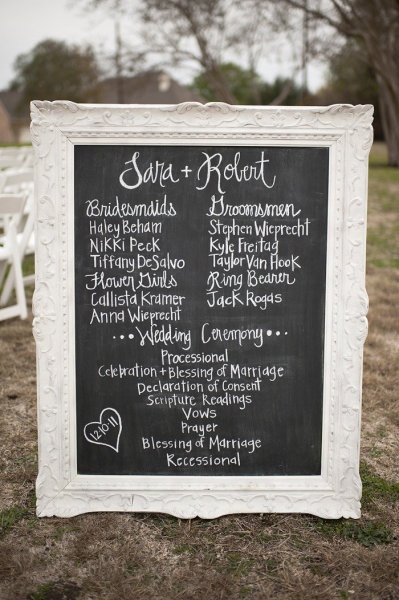 Sara + Robert
Bridesmaids
Haley Beham
Nikki Peck
Tiffany DeSalvo
Flower Girls
Callista Kramer
Anna Wieprecht
Groomsmen
Stephen Wieprecht
Kyle Freitag
Taylor Van Hook
Ring Bearer
Jack Rogas
•••Wedding Ceremony•••
Processional
Celebration + Blessing of Marriage
Declaration of Consent
Scripture Readings
Vows
Prayer
Blessing of Marriage
Recessional
12.10.11